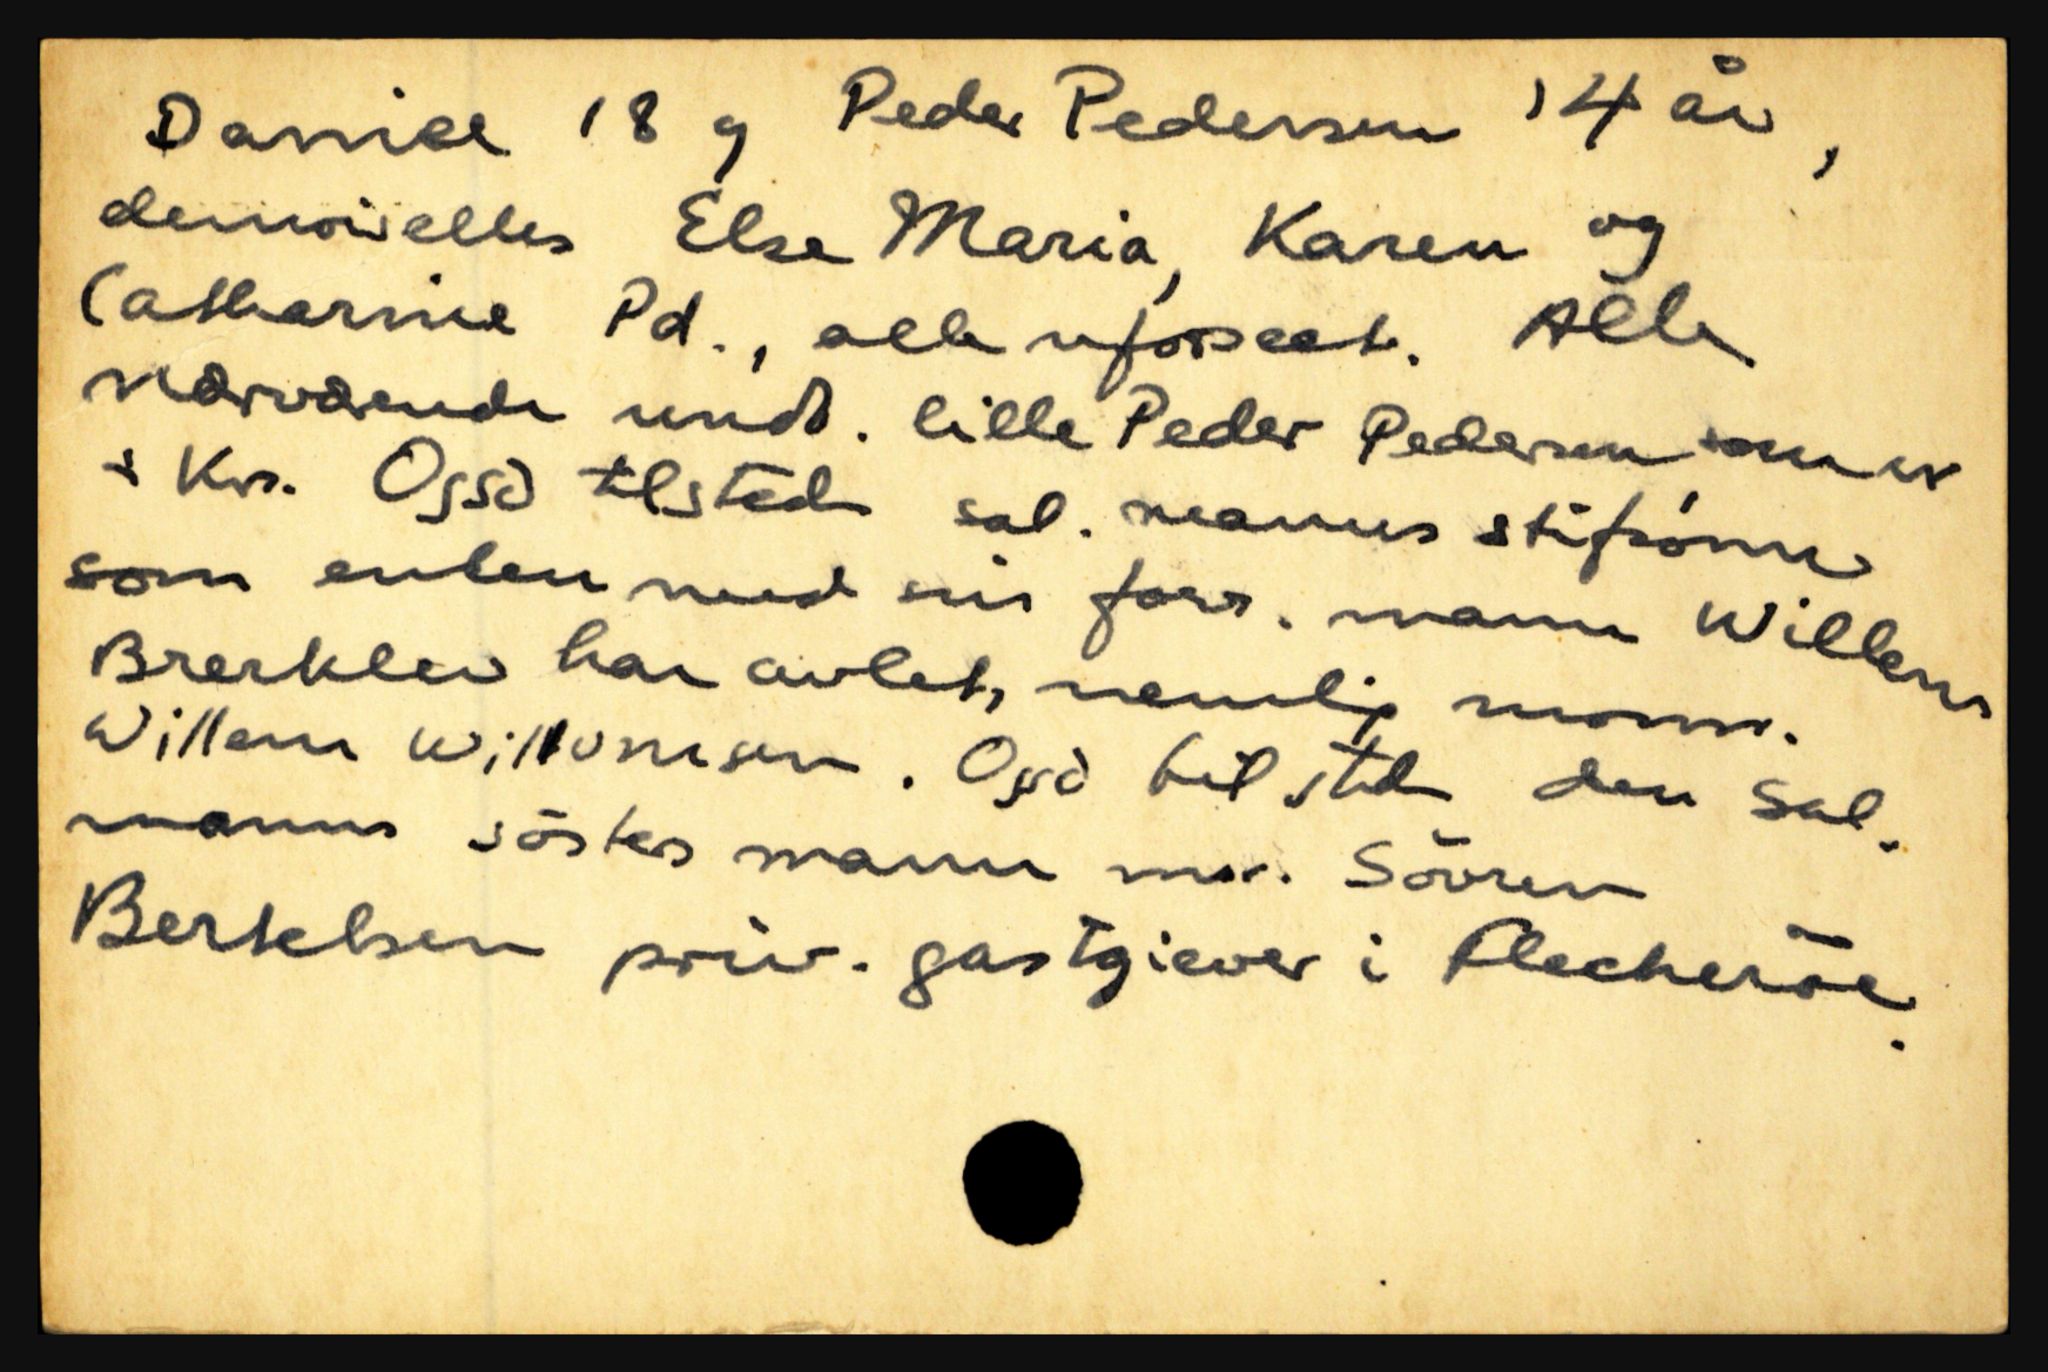 Daniel 18 g Peder Pedersen 14 år,
demoiselles Else Maria, Karen og
Catharine Pd., alle uforseet. Alle
nærværende undt. lille Peder Pedersen som er
i Krs. Også tilstede sal. manns stifsønn
som enken med sin forr. mann Willem
Brerklev har avlet, nemlig monsr.
Willem Willumsen. Også tilsted den sal.
manns søsters mann mr. Søvren
Bertelsen priv. gastgiever i Fleckerøe.